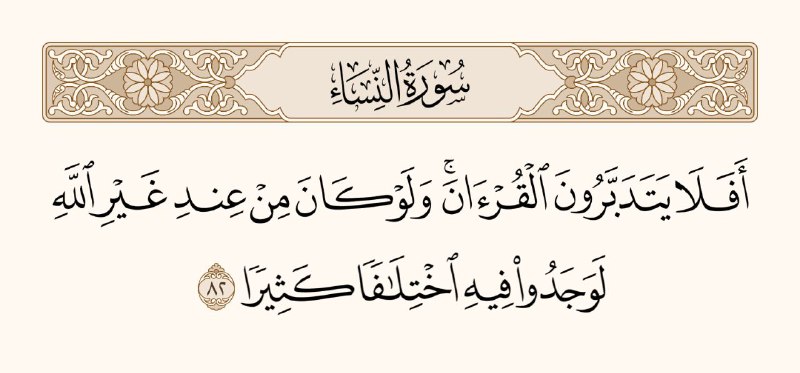 سُورَةُ النِّسَاءِ
أَفَلَا يَتَدَبَّرُونَ ٱلْقُرْءَانَۚ وَلَوْ كَانَ مِنْ عِندِ غَيْرِ ٱللَّهِ
لَوَجَدُوا۟ فِيهِ ٱخْتِلَٰفًا كَثِيرًا ٨٢